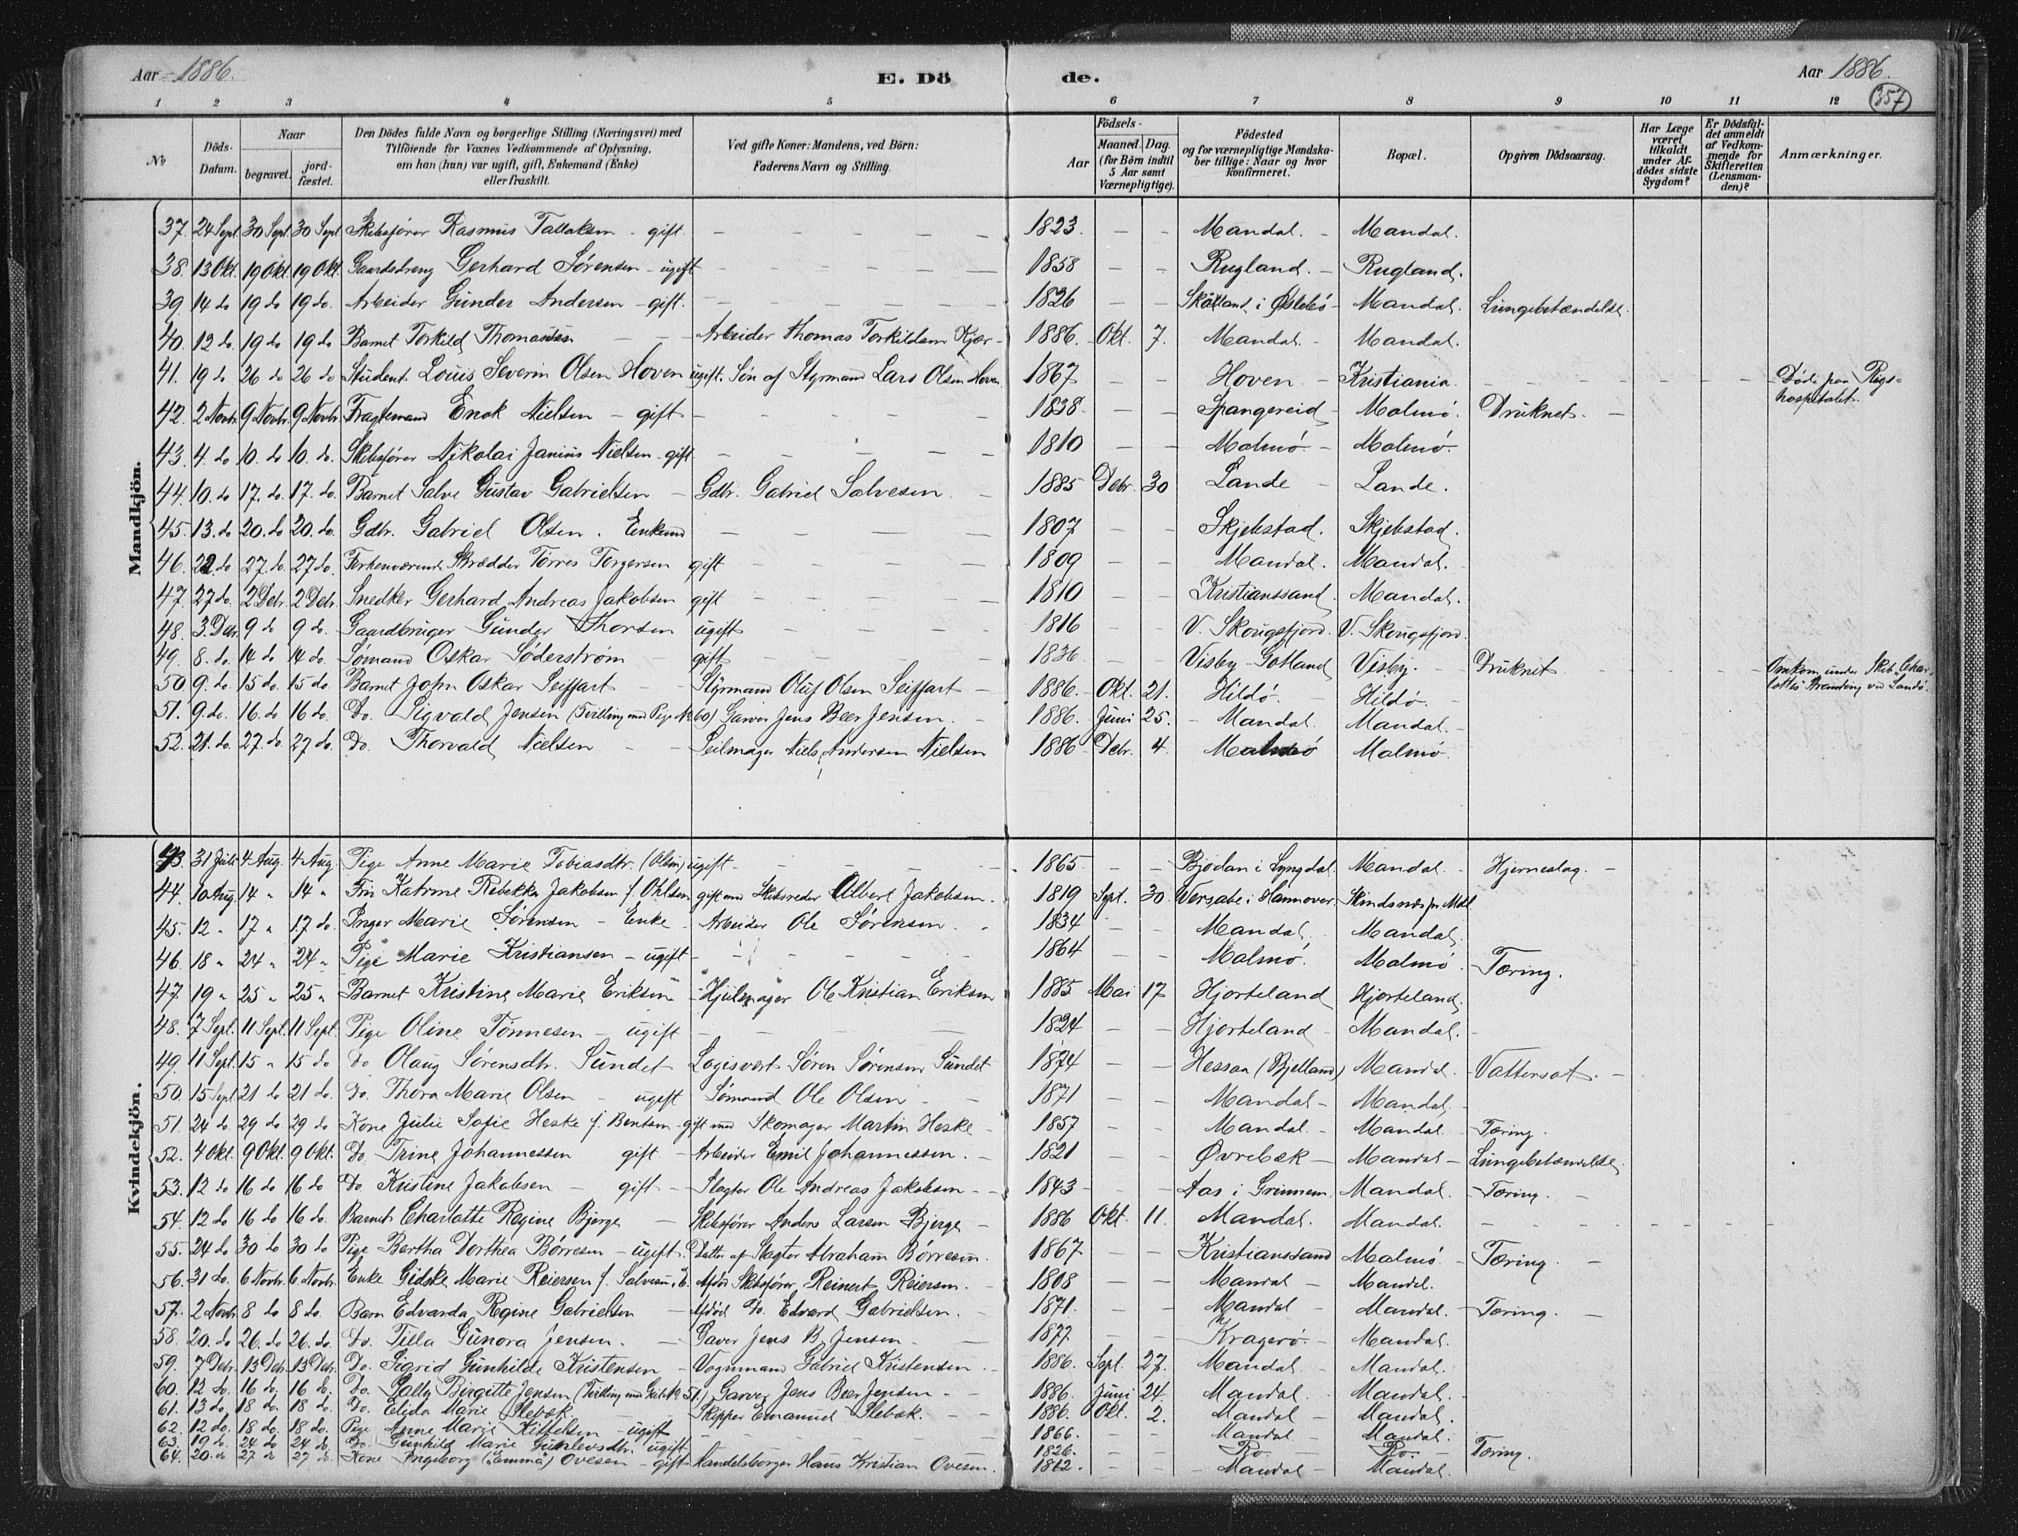 Aar 1886. E. Dö de. Aar 1886.
357
1 2 3 4 5 6 7 8 9 10 11 12
No
Döds-Datum.
Naar
begravet.
jord-fæstet.
Den Dödes fulde Navn og borgerlige Stilling (Næringsvei) med
Tilföiende for Voxnes Vedkommende af Oplysning,
om han (hun) var ugift, gift, Enkemand (Enke)
eller fraskilt.
Ved gifte Koner: Mandens, ved Börn:
Faderens Navn og Stilling.
Födsels-
Aar
Maaned. Dag.
(for Börn indtil
5 Aar samt
Værnepligtige).
Födested
og for værnepligtige Mandska-
ber tillige: Naar og hvor
konfirmeret.
Bopæl.
Opgiven Dödsaarsag.
Har Læge
været
tilkaldt
under Af-
dödes sidste
Sygdom?
Er Dödsfal-
det anmeldt
af Vedkom-
mende for
Skifteretten
(Lensman-
den)?
Anmærkninger.
Mandkjön.
37. 24 Sept 30 Sept 30 Sept Skibsfører Rasmus Tallaksen - gift - 1823. - - Mandal. - Mandal.
38. 13 Okt. 19 Okt. 19 Okt. Gaardsdreng Gerhard Sørensen - ugift - 1858 - - Rugland. - Rugland.
39. 14 do 19 do 19 do. Arbeider Gunder Andersen - gift. - 1826 - - i Øslebø - Mandal. Lungebetændelse.
40. 12 do. 19 do 19 do Barnet Torkild Thomassen - Arbeider Thomas Torkildsen Kjær - 1886. Okt. 7. Mandal - Mandal.
41. 19 do 26 do 26 do Student Louis Severin Olsen Hoven ugift. Søn af Styrmand Lars Olsen Hoven 1867 - - Hoven - Kristiania. - Døde paa Rigs-
hospitalet.
42. 2 Novbr. 9 Novbr. 9 Novbr. Fragtemand Enok Nielsen - gift - 1838. - - Spangereid - Malmø. Druknet. -
43. 4. do 10. do 10. do. Skibsfører Nikolai Janius Nielsen - gift - 1810 - - Malmø - Malmø.
44. 10. do 17. do. 17. do. Barnet Salve Gustav Gabrielsen - Gdbr. Gabriel Salvesen. - 1885 Debr. 30 Lande - Lande.
45. 13. do 20. do 20. do. Gdbr. Gabriel Olsen. Enkemd - 1807 - - Skjebstad. Skjebstad.
46. 22. do 27. do. 27 do. Forhenværende Skrædder Tørres Torgersen gift - 1809 - - Mandal. Mandal.
47. 27 do. 2 Debr. 2 Debr. Snedker Gerhard Andreas Jakobsen gift - 1810 - - Kristianssand. Mandal.
48. 3. Debr. 9 do 9 do. Gaardbruger Gunder Thorsen ugift - 1816 - - V. Skougsfjord. V. Skougsfjord.
49. 8. do. 14 do 14 do. Sømand Oskar Søderstrøm gift - 1836 - - Visby - Gotland Visby. - Druknet - Omkom under Skib
50. 9. do. 15 do. 15 do. Barnet John Oskar Seiffart - Styrmand Oluf Olsen Seiffart - 1886. Okt. 21. Hildø. - Hildø.
51. 9. do. 16. do 16 do. Do. Sigvald Jensen (Tvilling med Pige No 60) Garver Jens Beer Jensen. - 1886. Juni 25. - Mandal. Mandal.
52. 21. do. 27. do 27 do. Do. Thorvald Nielsen - Seilmager Niels Andersen Nielsen 1886 Debr. 4. Malmø Malmø.
Kvindekjön.
43. 31 Juli 4 Aug. 4 Aug. Pige Anne Marie Tobiasdtr. (Olsen) ugift - 1865 - - i Lyngdal. Mandal. - Hjerneslag. -
44. 10 Aug. 14 " 14 " Fru Katrine Rebekka Jakobsen f. Ohlsen gift med Skibsreder Albert Jakobsen. 1819 Sept. 30. Wersabe i Hannover.
45. 12 " 17 " 17 do. Inger Marie Sørensen - Enke - Arbeider Ole Sørensen. 1834 - - Mandal. Mandal.
46. 18 " 24 " 24 " Pige Marie Kristiansen - ugift - 1864 - - Malmø. Malmø. - Tæring.
47. 19 " 25 " 25 " Barnet Kristine Marie Eriksen - Hjulmager Ole Kristian Eriksen 1885 Mai 17 Hjorteland Hjorteland.
48. 7 Sept. 11 Sept. 11 Sept. Pige Oline Tønnesen - ugift - 1824 - - Hjorteland - Mandal. -
49. 11 Sept. 15 " 15 do Do Olaug Sørensdtr. Sundet Logisvert Søren Sørensen Sundet 1874 - - Hessaa (Bjelland) Mandal. Vattersot. -
50. 15 Sept. 21 do 21 do. Do. Thora Marie Olsen - ugift Sømand Ole Olsen - 1871 - - Mandal - Mandal.
51. 24 do. 29 do 29 do Kone Julie Sofie Heske f. Bentsen - gift med Skomager Martin Heske - 1857 - - Mandal. - Mandal. - Tæring.
52. 4 Okt. 9 Okt. 9 Okt. Do. Trine Johannessen gift - Arbeider Emil Johannessen. - 1821 - - Øvrebæk - Mandal - Lungebetændelse.
53. 12 do 16 do 16 do Do Kristine Jakobsen - gift - Slagter Ole Andreas Jakobsen - 1843 - - Aas i Grinnem. Mandal. - Tæring. -
54. 12 do 16 do 16 do. Barnet Charlotte Regine Bjerge - Skibsfører Anders Larsen Bjerge - 1886 Okt. 11. Mandal. Mandal.
55. 24 do 30 do 30 do Pige Bertha Dorthea Børresen - ugift. Datter af Slagter Abraham Børresen. 1867 - - Kristianssand Malmø - Tæring. -
56. 31 do. 6 Novbr. 6 Novbr. Enke Gidske Marie Reiersen f. Salvesen. Afdøde Skibsfører Reinert Reiersen. 1808 - - Mandal - Mandal.
57. 2 Novbr. 8 do 8 do. Barn Edvarda Regine Gabrielsen - Afdød Do. Edvard Gabrielsen. - 1871. - - Mandal Mandal. - Tæring. -
58. 20. do 26. do. 26. do. Do. Tilla Gunora Jensen. - Garver Jens B. Jensen. - 1877. - - Kragerø. - Mandal.
59. 7 Debr. 13 Debr. 13 Debr. Do. Sigrid Gunhilde Kristensen - Vognmand Gabriel Kristensen - 1886. Sept. 27. Mandal - Mandal.
60. 12 do. 16 do. 16 do. Do. Birgitte Jensen (Tvilling med Gut No 51.) Garver Jens Beer Jensen - 1886. Juni 24. Mandal Mandal.
61. 13 do. 18 do. 18 do. Do. Elida Marie Slebæk. Skipper Emanuel Slebæk. - 1886. Okt. 2. Mandal - Mandal.
62. 12 do. 18 do. 18 do. Pige Anne Marie - ugift - 1866. - - Mandal - Mandal.
63. 19 do. 24 do 24 do Do. Gunhild Marie Gunlevsdtr. ugift - 1826. - - Ro. - Ro. - Tæring.
64. 20. do 27 do 27 do. Kone Ingeborg (Emma) Ovesen - gift Handelsborger Hans Kristian Ovesen. 1812. - - Mandal - Mandal.